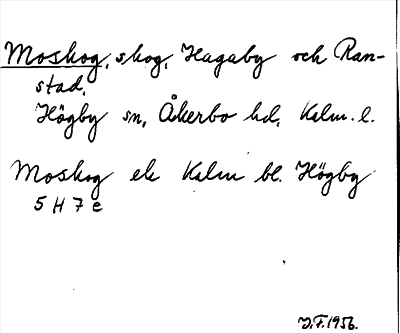 Moskog, skog, Hagaby och Ran-
stad,
Högby sn, Åkerbo hd, Kalm. l.
Moskog ek Kalm bl. Högby
5 H 7 e
J.F. 1956.